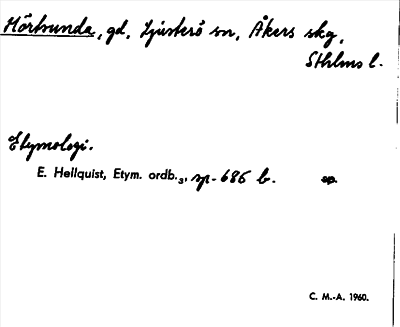 Mörtsunda, gd, Ljusterö sn, Åkers skg,
Sthlms l.
Etymologi.
E. Hellquist, Etym. ordb.3, sp. 686 b. sp.
C. M.-A. 1960.